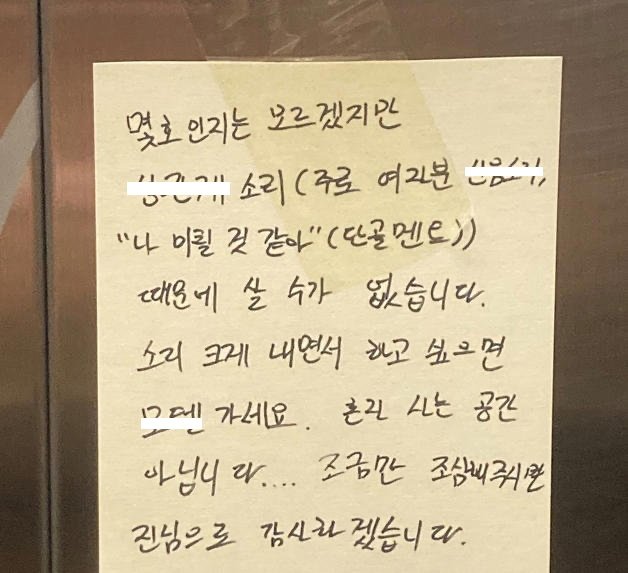 몇호인지는 모르겠지만
소리 (주로 여자분
"나 미칠 것 같아" (단골멘트))
때문에 살 수가 없습니다.
소리 크게 내면서 하고 싶으면
모텔 가세요. 혼자 사는 공간
아닙니다.... 조금만 조심해주시면
진심으로 감사하겠습니다.